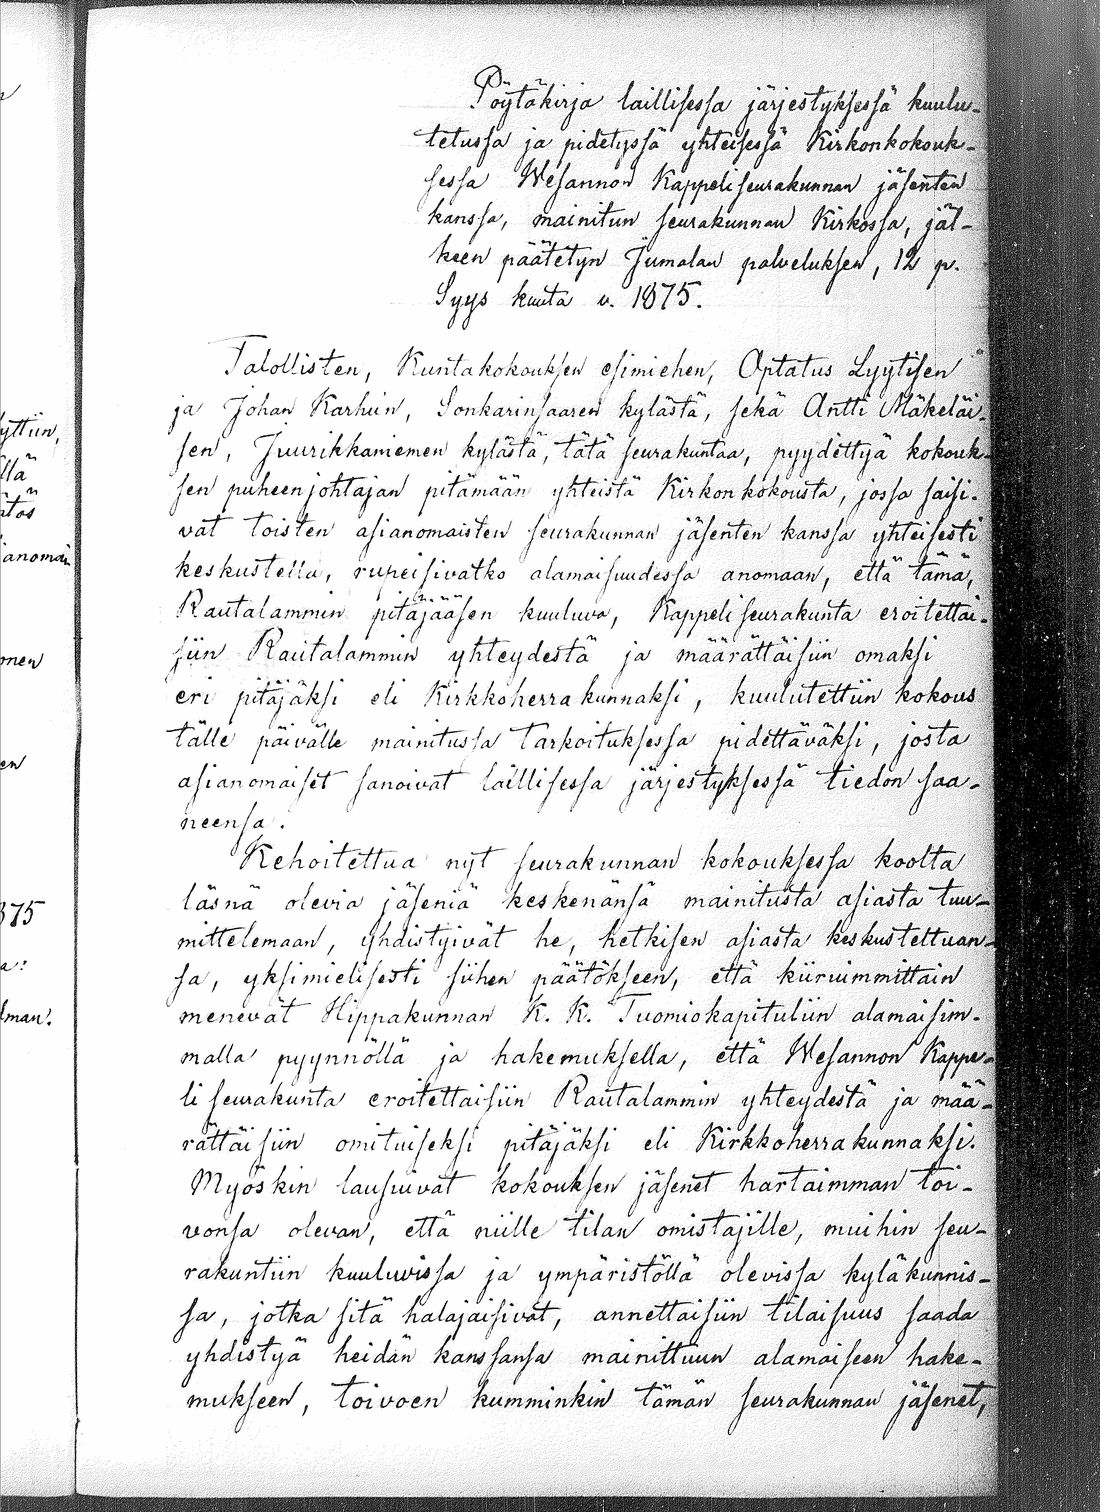 Pöytäkirja laillisessa järjestyksessä kuulu-
tetussa ja pidetyssä yhteisessä Kirkonkokouk-
sessa Wesannon Kappeliseurakunnan jäsenten
kanssa, mainitun seurakunnan Kirkossa, jäl-
keen päätetyn Jumalan palveluksen, 12 p.
Syys kuuta v. 1875.
Talollisten, Kuntakokouksen esimiehen, Optatus Lyytisen
ja Johan Karhun, Sonkarinsaaren kylästä, sekä Antti Mäkeläi-
sen, Juurikkaniemen kylästä, tätä seurakuntaa, pyydettyä kokouk-
sen puheenjohtajan pitämään yhteistä Kirkonkokousta, jossa saisi-
vat toisten asianomaisten seurakunnan jäsenten kanssa yhteisesti
keskustella, rupeisivatko alamaisuudessa anomaan, että tämä,
Rautalammin pitäjääsen kuuluva, Kappeliseurakunta eroitettai-
siin Rautalammin yhteydestä ja määrättäisiin omaksi
eri pitäjäksi eli Kirkkoherrakunnaksi, kuulutettiin kokous
tälle päivälle mainitussa tarkoituksessa pidettäväksi, josta
asianomaiset sanoivat laillisessa järjestyksessä tiedon saa-
neensa.
Kehoitettua nyt seurakunnan kokouksessa koolta
läsnä olevia jäseniä keskenänsä mainitusta asiasta tuu-
mittelemaan, yhdistyivät he, hetkisen asiasta keskusteltuan-
sa, yksimielisesti siihen päätökseen, että kiiruimmittain
menevät Hippakunnan K. K. Tuomiokapituliin alamaisim-
malla pyynnöllä ja hakemuksella, että Wesannon Kappe-
li seurakunta eroitettaisiin Rautalammin yhteydestä ja mää-
rättäisiin omituiseksi pitäjäksi eli Kirkkoherrakunnaksi.
Myöskin lausuivat kokouksen jäsenet hartaimman toi-
vonsa olevan, että niille tilan omistajille, muihin seu-
rakuntiin kuuluvissa ja ympäristöllä olevissa kyläkunnis-
sa, jotka sitä halajaisivat, annettaisiin tilaisuus saada
yhdistyä heidän kanssansa mainittuun alamaiseen hake-
mukseen, toivoen kumminkin tämän seurakunnan jäsenet,